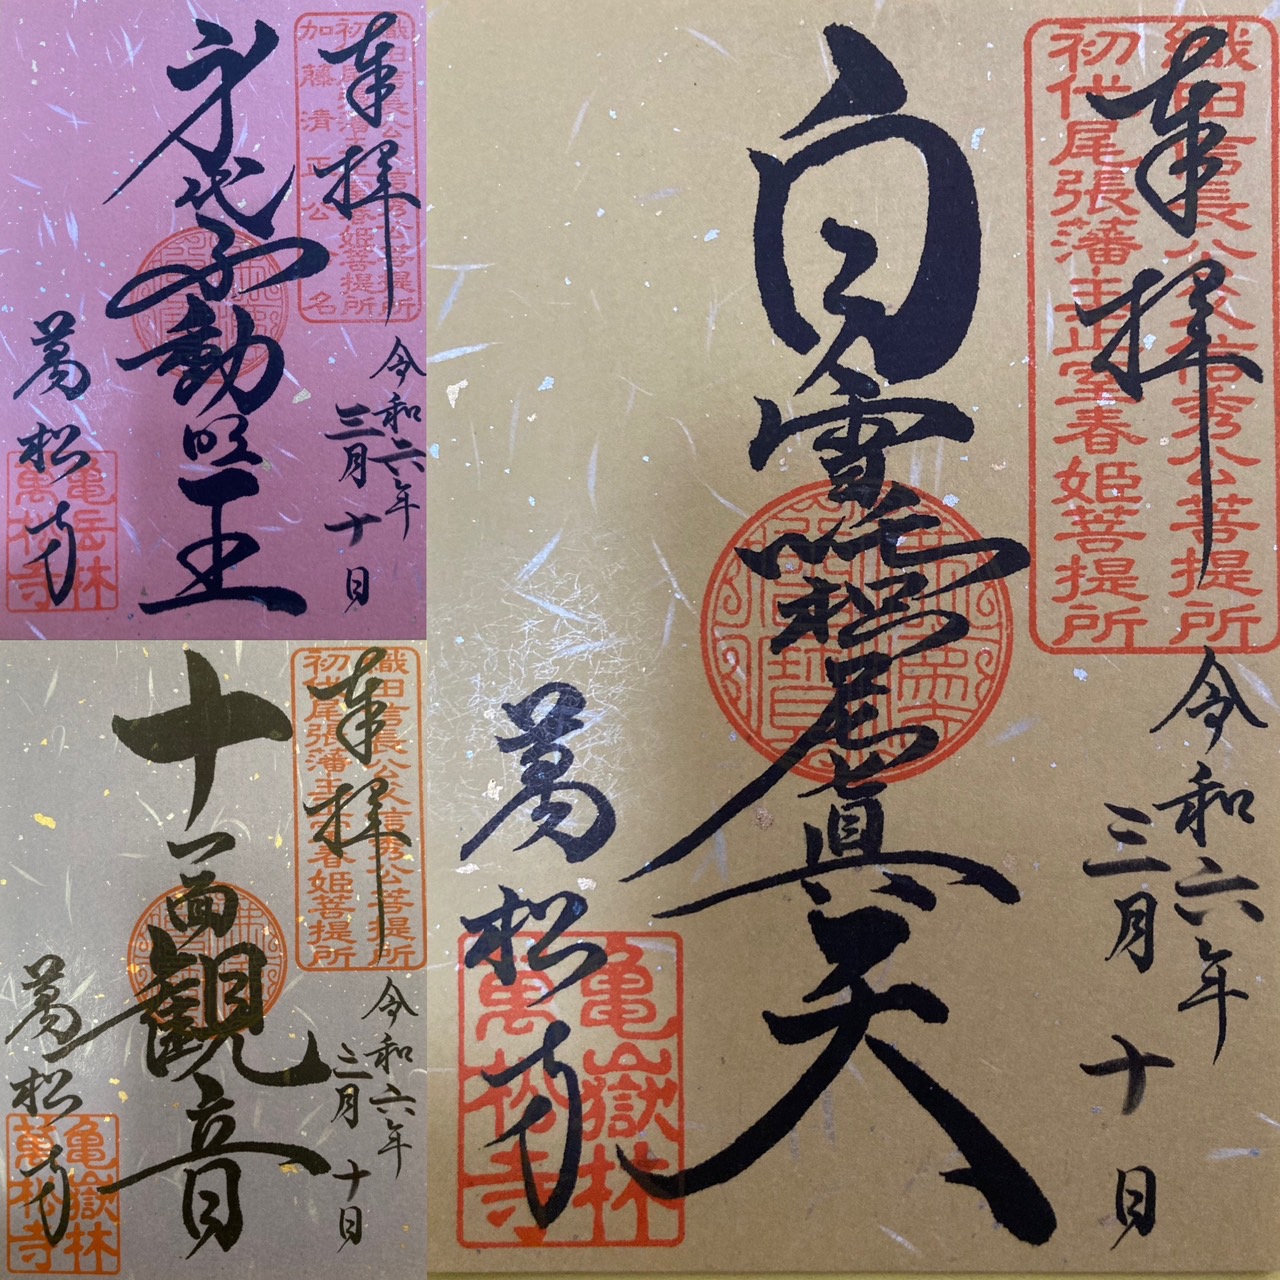 奉拝
織田信長公父信秀公菩提所
初代尾張藩主正室春姫菩提所
加藤清正公名
令和六年
三月十日
身代不動明王
萬松寺
亀岳林
萬松寺
奉拝
織田信長公父信秀公菩提所
初代尾張藩主正室春姫菩提所
令和六年
三月十日
十一面観音
萬松寺
亀嶽林
萬松寺
奉拝
織田信長公父信秀公菩提所
初代尾張藩主正室春姫菩提所
令和六年
三月十日
白雪吒枳尼真天
萬松寺
亀嶽林
萬松寺